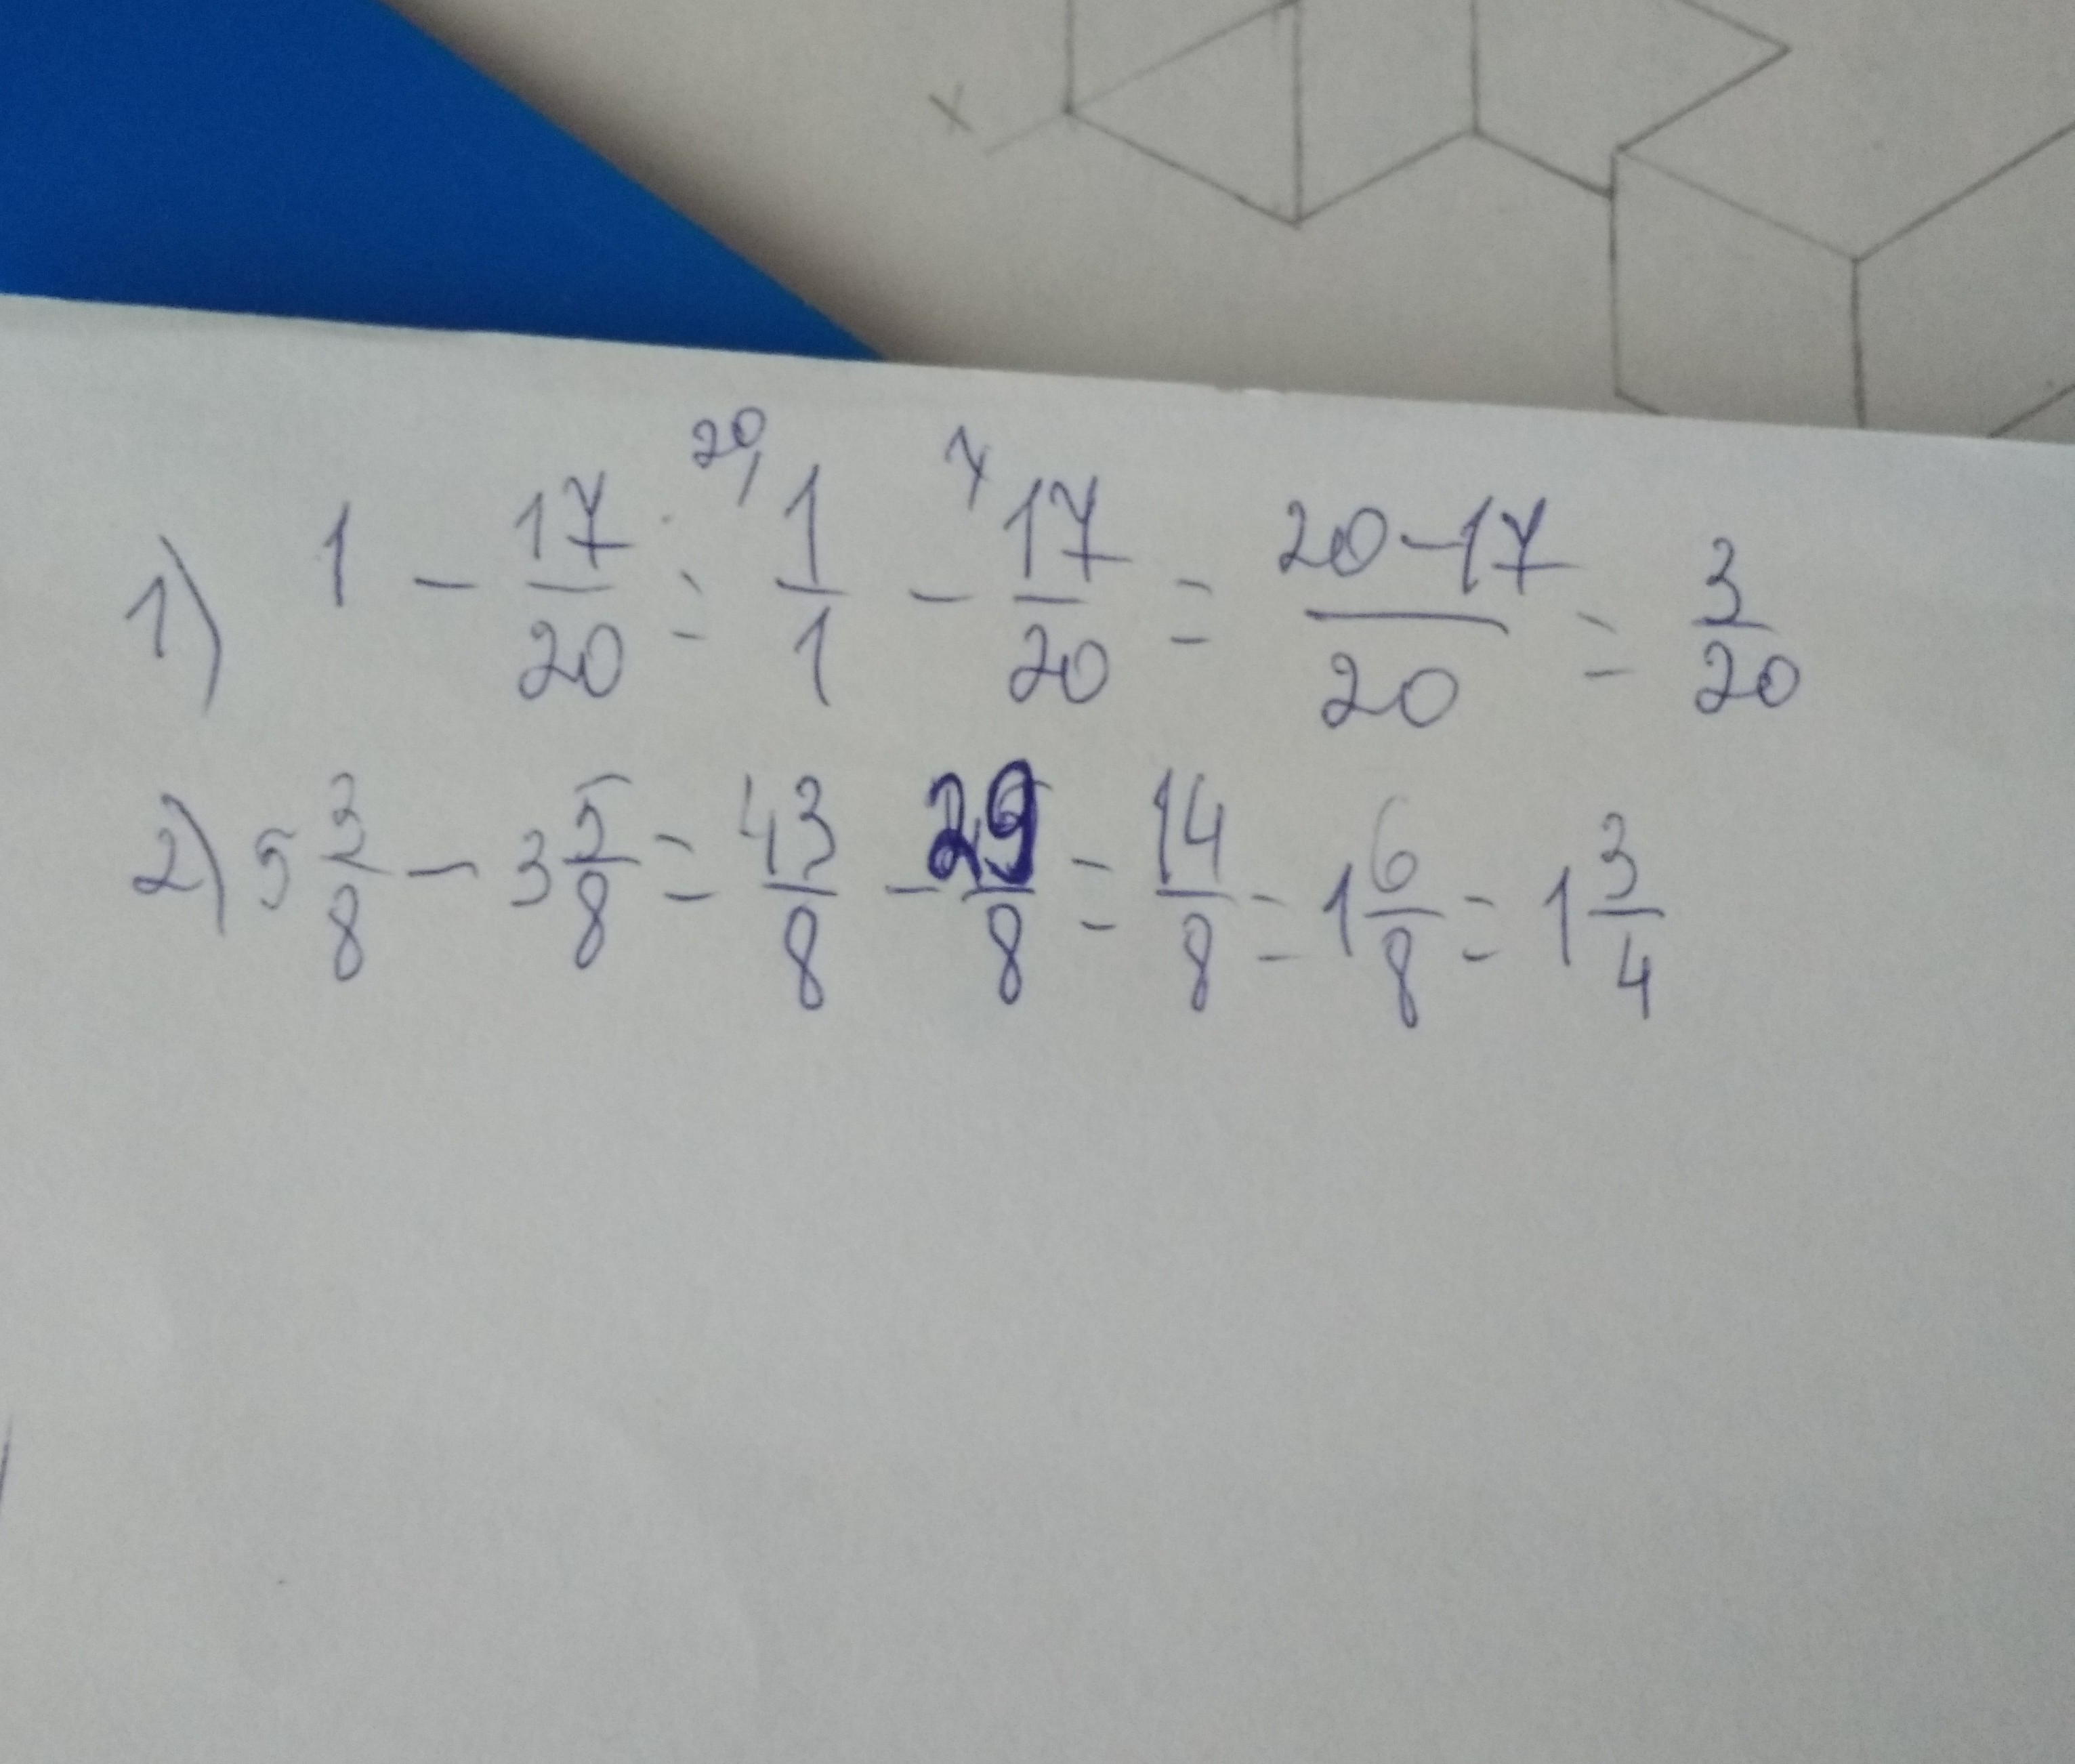 x
1) 1 - 17/20 = 20/ 1/1 - 1/ 17/20 = 20-17/20 = 3/20
2) 5 3/8 - 3 5/8 = 43/8 - 29/8 = 14/8 = 1 6/8 = 1 3/4